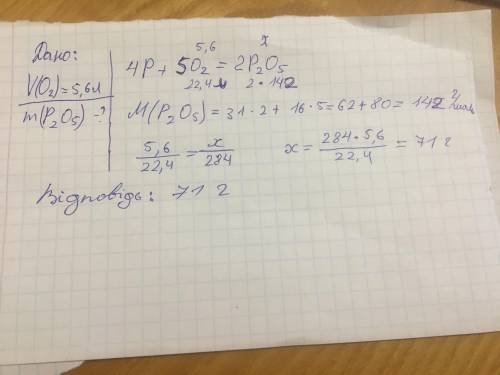 Дано:
V(O₂)=5,6л
m(P₂O₅)-?
5,6 x
4P + 5O₂ = 2P₂O₅
22,4л 2·142
M(P₂O₅)=31·2+16·5=62+80=142 г/моль
5,6/22,4 = x/284 x = 284·5,6/22,4 = 71 г
Відповідь: 71 г